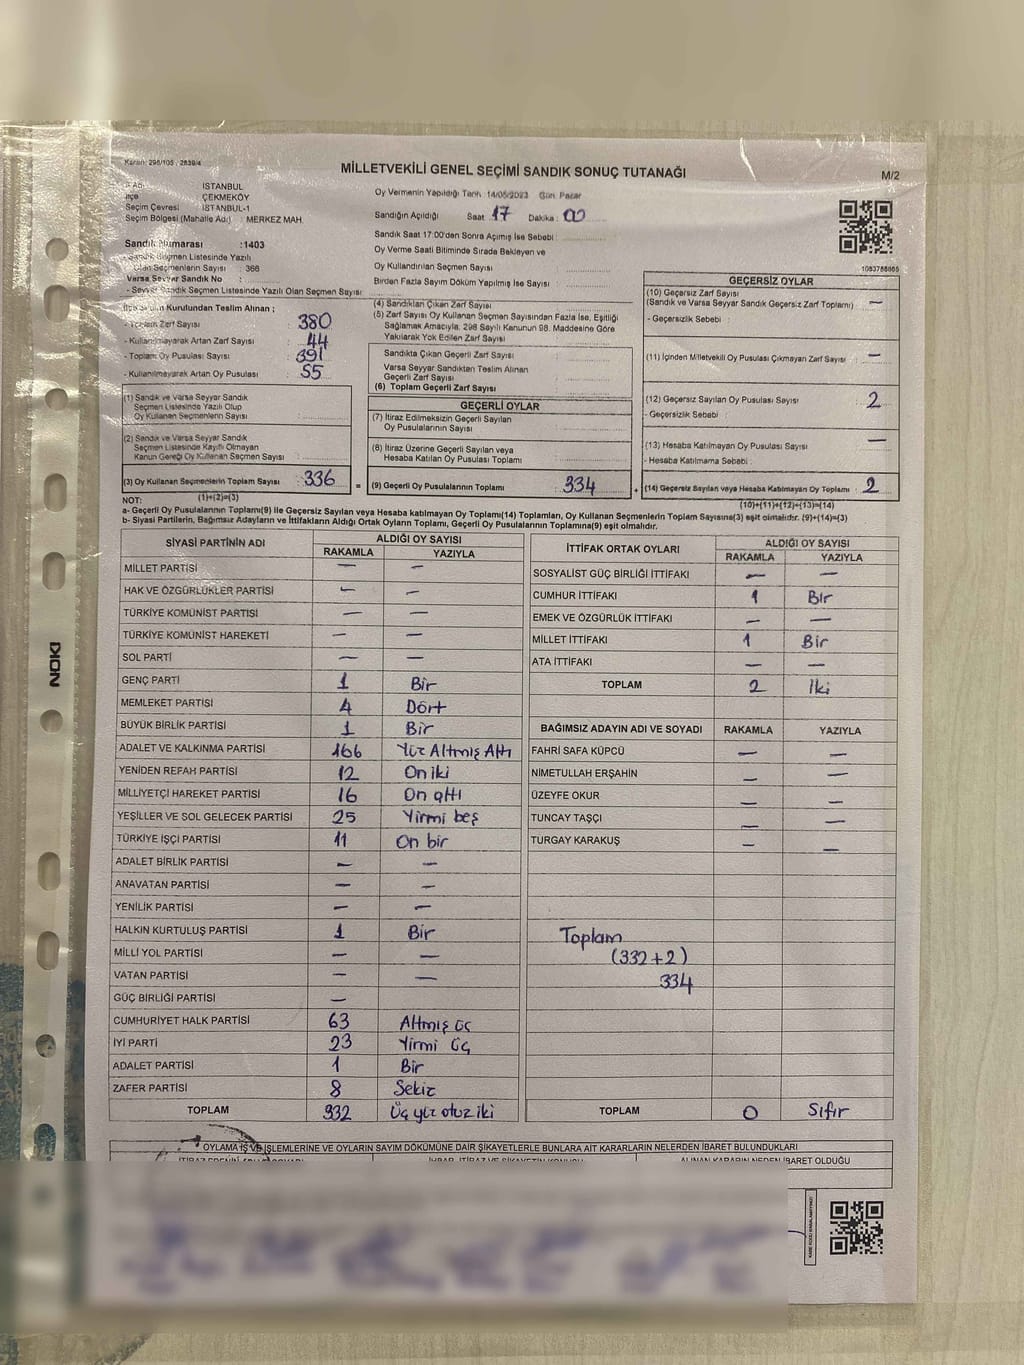 Karar: 298/105 , 2839/4
MİLLETVEKİLİ GENEL SEÇİMİ SANDIK SONUÇ TUTANAĞI
M/2
İl Adı : İSTANBUL
İlçe : ÇEKMEKÖY
Seçim Çevresi : İSTANBUL-1
Seçim Bölgesi (Mahalle Adı) : MERKEZ MAH.
Sandık Numarası :1403
Sandık Seçmen Listesinde Yazılı
Olan Seçmenlerin Sayısı : 366
Varsa Seyyar Sandık No :
- Seyyar Sandık Seçmen Listesinde Yazılı Olan Seçmen Sayısı
Oy Vermenin Yapıldığı Tarih 14/05/2023 Gün Pazar
Sandığın Açıldığı Saat 17 Dakika : 00
Sandık Saat 17:00'den Sonra Açımış İse Sebebi :
Oy Verme Saati Bitiminde Sırada Bekleyen ve
Oy Kullandırılan Seçmen Sayısı
Birden Fazla Sayım Döküm Yapılmış İse Sayısı
1083788865
İlçe Seçim Kurulundan Teslim Alınan ;
- Toplam Zarf Sayısı : 380
- Kullanılmayarak Artan Zarf Sayısı : 44
- Toplam Oy Pusulası Sayısı : 391
- Kullanılmayarak Artan Oy Pusulası : 55
(1) Sandık ve Varsa Seyyar Sandık
Seçmen Listesinde Yazılı Olup
Oy Kullanan Seçmenlerin Sayısı
(2) Sandık ve Varsa Seyyar Sandık
Seçmen Listesinde Kayıtlı Olmayan
Kanun Gereği Oy Kullanan Seçmen Sayısı
(3) Oy Kullanan Seçmenlerin Toplam Sayısı 336
(1)+(2)=(3)
(4) Sandıktan Çıkan Zarf Sayısı
(5) Zarf Sayısı Oy Kullanan Seçmen Sayısından Fazla İse, Eşitliği
Sağlamak Amacıyla, 298 Sayılı Kanunun 98. Maddesine Göre
Yakılarak Yok Edilen Zarf Sayısı
Sandıkta Çıkan Geçerli Zarf Sayısı
Varsa Seyyar Sandıktan Teslim Alınan
Geçerli Zarf Sayısı
(6) Toplam Geçerli Zarf Sayısı
GEÇERLİ OYLAR
(7) İtiraz Edilmeksizin Geçerli Sayılan
Oy Pusulalarının Sayısı
(8) İtiraz Üzerine Geçerli Sayılan veya
Hesaba Katılan Oy Pusulası Toplamı
= (9) Geçerli Oy Pusulalarının Toplamı 334
GEÇERSİZ OYLAR
(10) Geçersiz Zarf Sayısı
(Sandık ve Varsa Seyyar Sandık Geçersiz Zarf Toplamı) —
- Geçersizlik Sebebi :
(11) İçinden Milletvekili Oy Pusulası Çıkmayan Zarf Sayısı —
(12) Geçersiz Sayılan Oy Pusulası Sayısı 2
- Geçersizlik Sebebi
(13) Hesaba Katılmayan Oy Pusulası Sayısı —
- Hesaba Katılmama Sebebi
+ (14) Geçersiz Sayılan veya Hesaba Katılmayan Oy Toplamı 2
(10)+(11)+(12)+(13)=(14)
NOT:
a- Geçerli Oy Pusulalarının Toplamı(9) ile Geçersiz Sayılan veya Hesaba katılmayan Oy Toplamı(14) Toplamları, Oy Kullanan Seçmenlerin Toplam Sayısına(3) eşit olmalıdır. (9)+(14)=(3)
b- Siyasi Partilerin, Bağımsız Adayların ve İttifakların Aldığı Ortak Oyların Toplamı, Geçerli Oy Pusulalarının Toplamına(9) eşit olmalıdır.
SİYASİ PARTİNİN ADI ALDIĞI OY SAYISI
RAKAMLA YAZIYLA
MİLLET PARTİSİ — —
HAK VE ÖZGÜRLÜKLER PARTİSİ — —
TÜRKİYE KOMÜNİST PARTİSİ — —
TÜRKİYE KOMÜNİST HAREKETİ — —
SOL PARTİ — —
GENÇ PARTİ 1 Bir
MEMLEKET PARTİSİ 4 Dört
BÜYÜK BİRLİK PARTİSİ 1 Bir
ADALET VE KALKINMA PARTİSİ 166 Yüz Altmış Altı
YENİDEN REFAH PARTİSİ 12 On iki
MİLLİYETÇİ HAREKET PARTİSİ 16 On altı
YEŞİLLER VE SOL GELECEK PARTİSİ 25 Yirmi beş
TÜRKİYE İŞÇİ PARTİSİ 11 On bir
ADALET BİRLİK PARTİSİ — —
ANAVATAN PARTİSİ — —
YENİLİK PARTİSİ — —
HALKIN KURTULUŞ PARTİSİ 1 Bir
MİLLİ YOL PARTİSİ — —
VATAN PARTİSİ — —
GÜÇ BİRLİĞİ PARTİSİ —
CUMHURİYET HALK PARTİSİ 63 Altmış üç
İYİ PARTİ 23 Yirmi üç
ADALET PARTİSİ 1 Bir
ZAFER PARTİSİ 8 Sekiz
TOPLAM 332 Üç yüz otuz iki
İTTİFAK ORTAK OYLARI ALDIĞI OY SAYISI
RAKAMLA YAZIYLA
SOSYALİST GÜÇ BİRLİĞİ İTTİFAKI — —
CUMHUR İTTİFAKI 1 Bir
EMEK VE ÖZGÜRLÜK İTTİFAKI — —
MİLLET İTTİFAKI 1 Bir
ATA İTTİFAKI — —
TOPLAM 2 İki
BAĞIMSIZ ADAYIN ADI VE SOYADI RAKAMLA YAZIYLA
FAHRİ SAFA KÜPCÜ — —
NİMETULLAH ERŞAHİN — —
ÜZEYFE OKUR — —
TUNCAY TAŞÇI — —
TURGAY KARAKUŞ — —
Toplam
(332+2)
334
TOPLAM 0 Sıfır
OYLAMA İŞ VE İŞLEMLERİNE VE OYLARIN SAYIM DÖKÜMÜNE DAİR ŞİKAYETLERLE BUNLARA AİT KARARLARIN NELERDEN İBARET BULUNDUKLARI
ALINAN KARARIN NEDEN İBARET OLDUĞU
NOKI